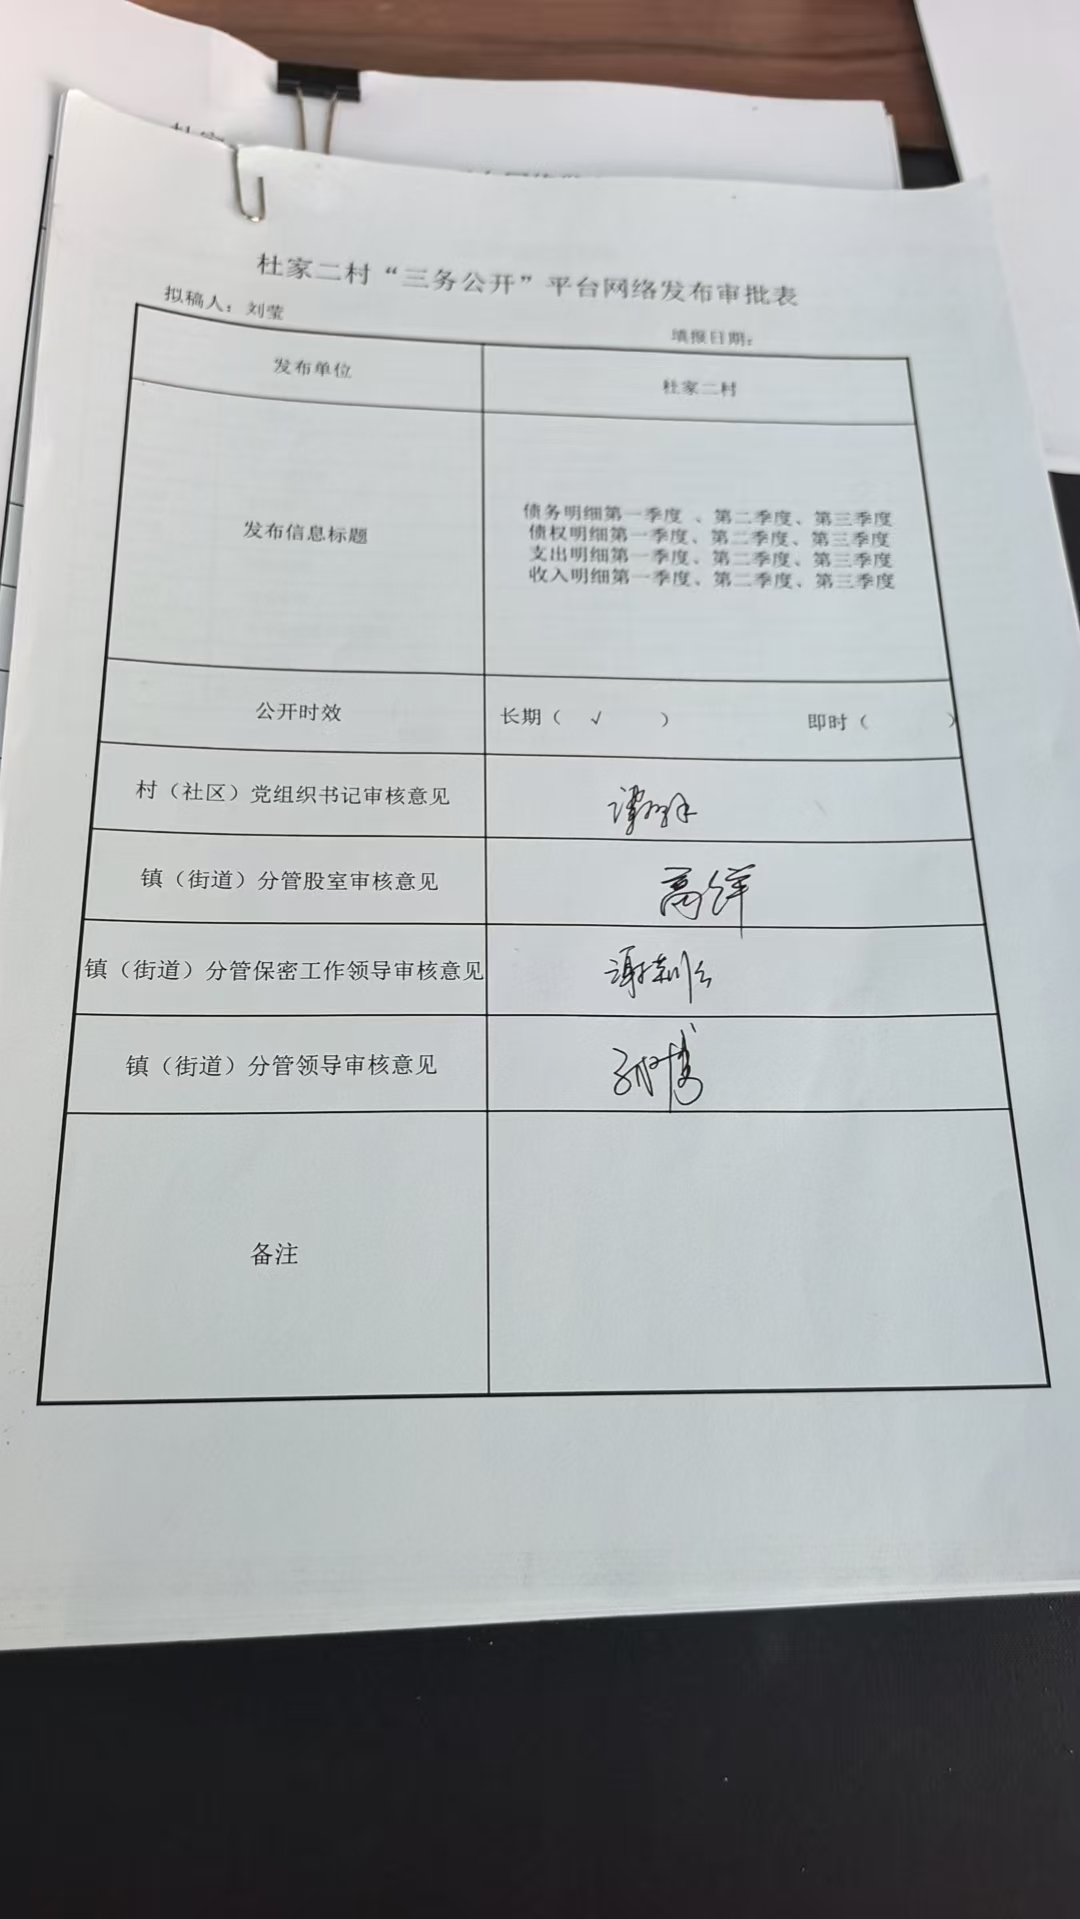 杜家二村“三务公开”平台网络发布审批表
拟稿人：刘莹 填报日期：
发布单位 杜家二村
发布信息标题
债务明细第一季度 、第二季度、第三季度
债权明细第一季度、第二季度、第三季度
支出明细第一季度、第二季度、第三季度
收入明细第一季度、第二季度、第三季度
公开时效 长期（ √ ） 即时（ ）
村（社区）党组织书记审核意见
镇（街道）分管股室审核意见 高洋
镇（街道）分管保密工作领导审核意见
镇（街道）分管领导审核意见
备注